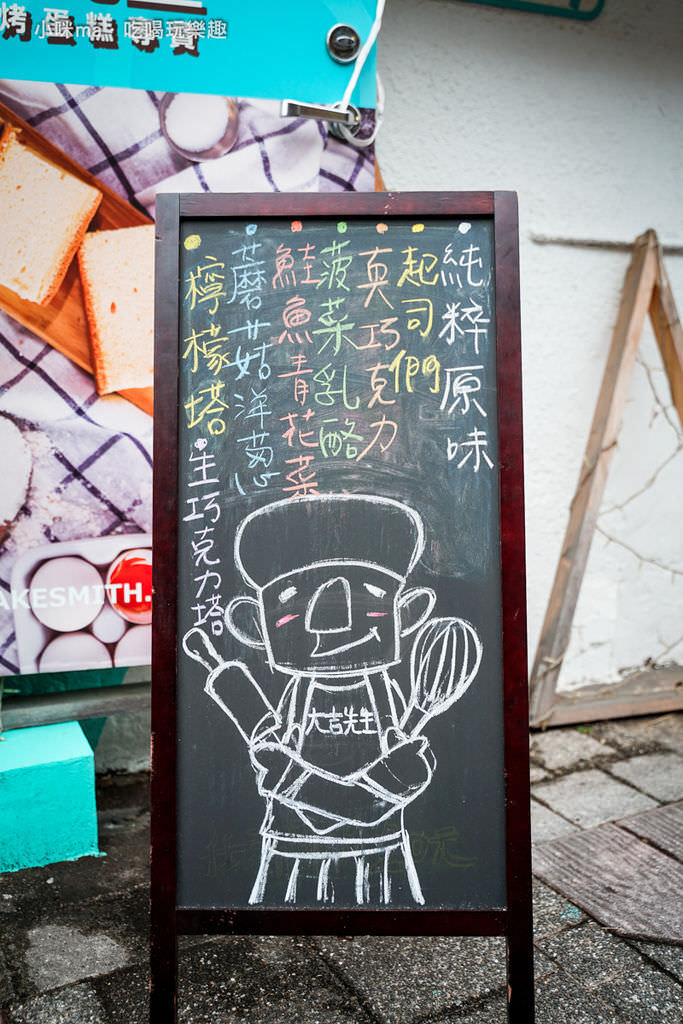 烤蛋糕專賣
小咪ma 吃喝玩樂趣
純粹原味
起司們
真巧克力
菠菜乳酪
鮭魚青花菜
蘑菇洋蔥
檸檬塔
生巧克力塔
大吉先生
AKESMITH.